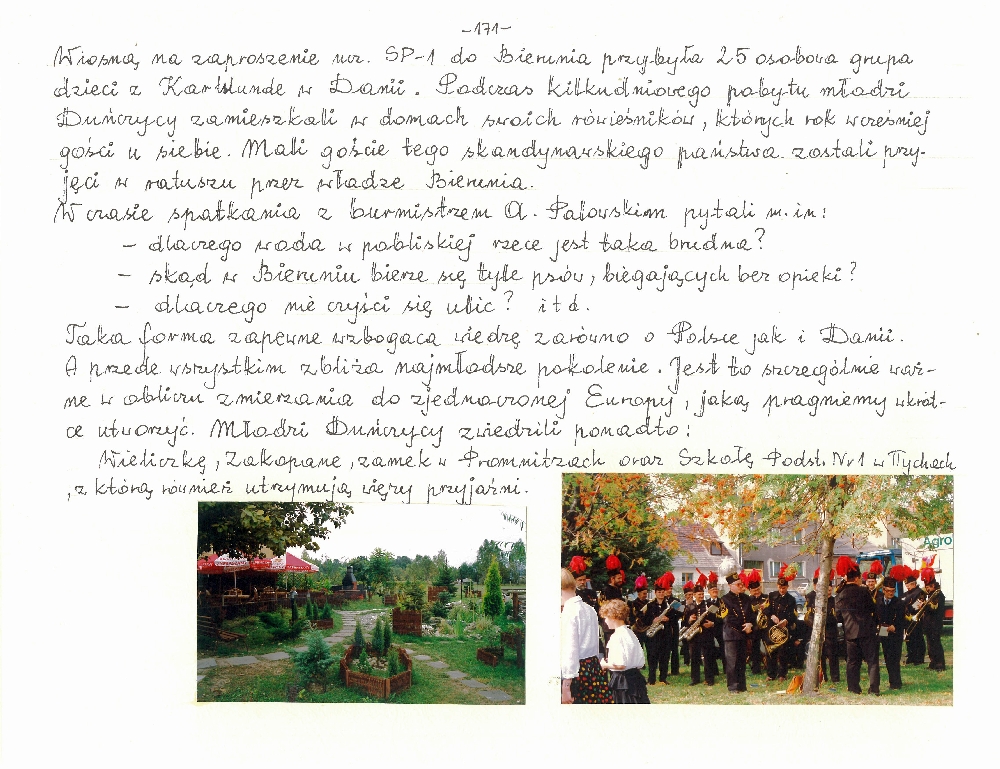 -171-
Wiosną na zaproszenie ucz. SP-1 do Bierunia przybyła 25 osobowa grupa
dzieci z Karlslunde w Danii. Podczas kilkudniowego pobytu młodzi
Duńczycy zamieszkali w domach swoich rówieśników, których rok wcześniej
gości u siebie. Mali goście tego skandynawskiego państwa zostali przy-
jęci w ratuszu przez władze Bierunia.
W czasie spotkania z burmistrzem A. Patowskim pytali m.in:
- dlaczego woda w pobliskiej rzece jest taka brudna?
- skąd w Bieruniu bierze się tyle psów, biegających bez opieki?
- dlaczego nie czyści się ulic? itd.
Taka forma zapewne wzbogaca wiedzę zarówno o Polsce jak i Danii.
A przede wszystkim zbliża najmłodsze pokolenie. Jest to szczególnie waż-
ne w obliczu zmierzania do zjednoczonej Europy, jaką pragniemy wkrót-
ce utworzyć. Młodzi Duńczycy zwiedzili ponadto:
Wieliczkę, Zakopane, zamek w Promnitzach oraz Szkołę Podst. Nr 1 w Tychach
, z którą również utrzymują więzy przyjaźni.
Agro